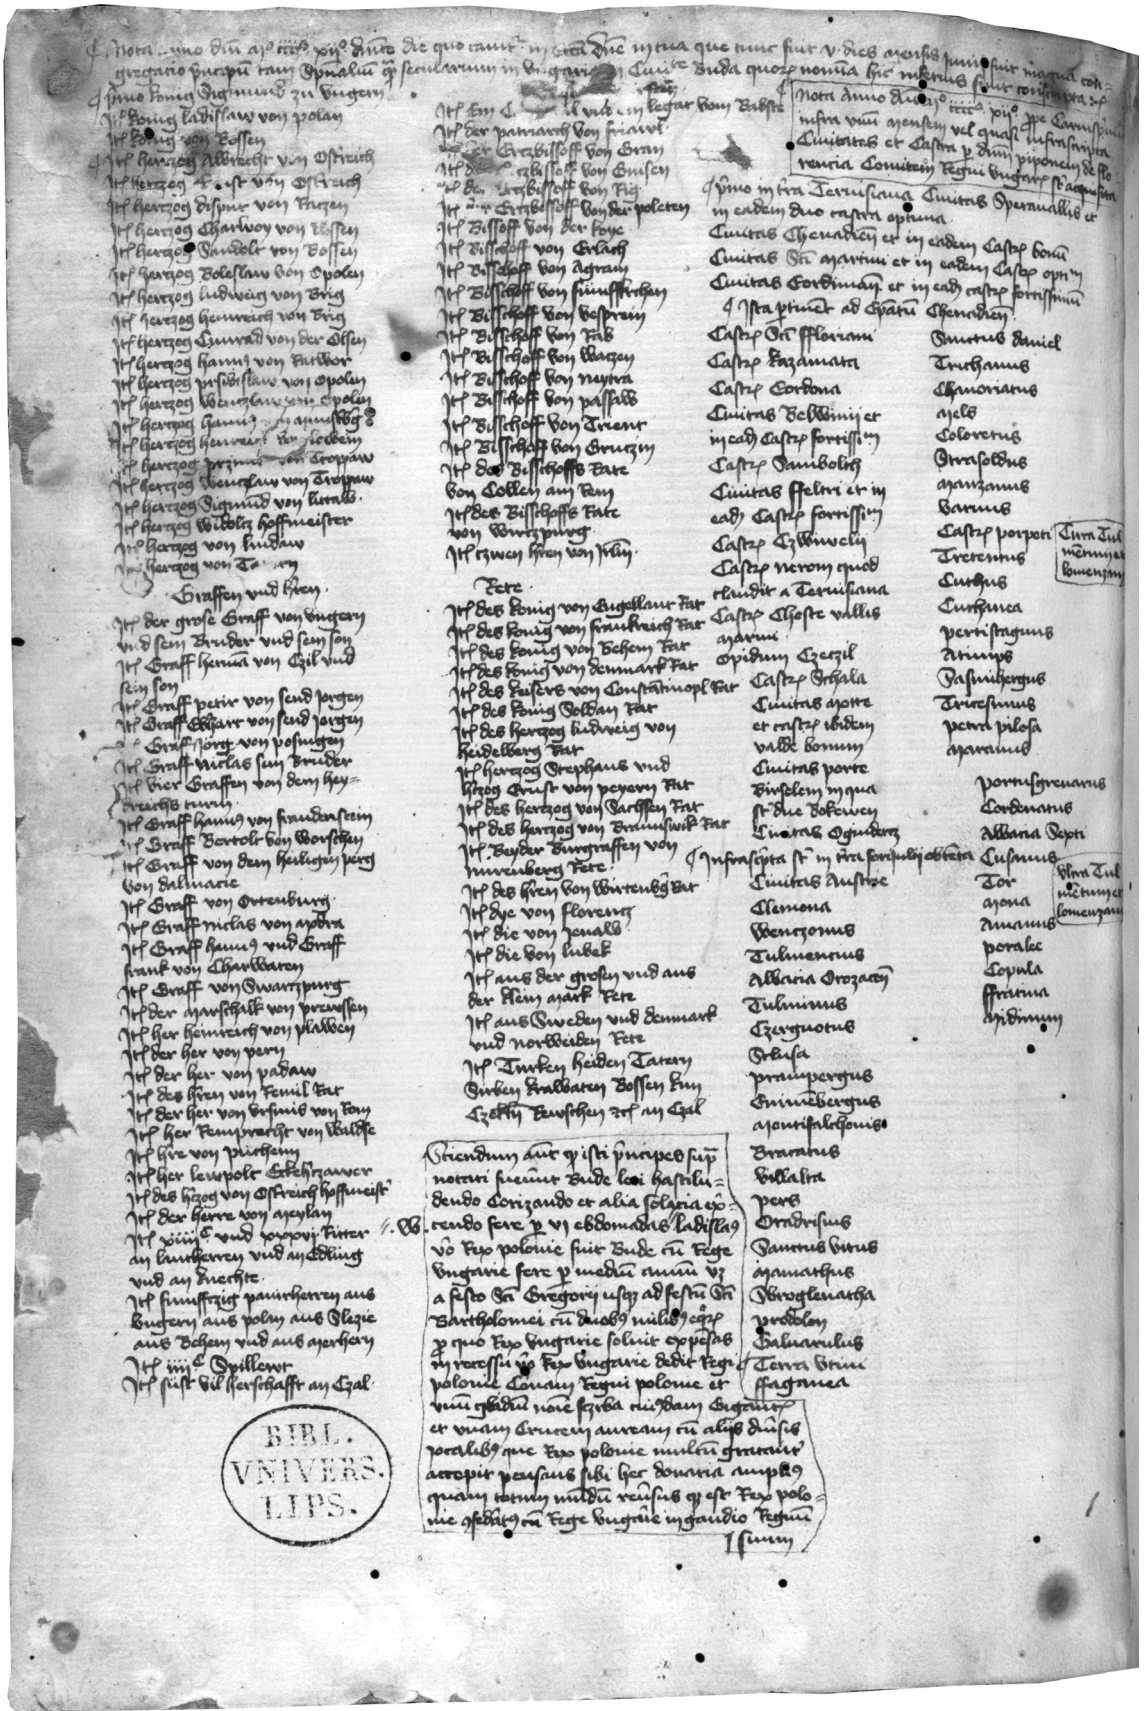 Nota Anno dni Mº ccccº xijº dnico die quo cantatur in ecclesia dne in tua que tunc fuit v dies mensis Junii fuit magna con-
gregacio principum tam spiritualium quam secularium in Vngaria in Ciuitate Buda quorum nomina hic inferius sunt conscripta
Primo konig Sigmund zu Vngern
Item konig ladislaw von polan
Item konig von Bossen
Item hertzog Albrecht von Ostreich
Item hertzog Ernst von Ostreich
Item hertzog dispot von Raczen
Item hertzog Charwoy von Bossen
Item hertzog Sandolt von Bossen
Item hertzog Boleslaw von Opolen
Item hertzog ludweig von Brig
Item hertzog heinreich von Brig
Item hertzog Cunrad von der Olsen
Item hertzog hannus von Ratwor
Item hertzog prsibislaw von Opolin
Item hertzog Wenczlaw von Opolin
Item hertzog hannus
Item hertzog heinreich
Item hertzog von Troppaw
Item hertzog Wenczlaw von Troppaw
Item hertzog Sigmund von littaw
Item hertzog Widoltz hoffmeister
Item hertzog von lindaw
Item hertzog von
Graffen vnd hren
Item der grose Graff von Vngern
vnd sein Bruder vnd sein son
Item Graff herman von Czil vnd
sein son
Item Graff petir von send Jorgen
Item Graff Ekhart von send Jorgen
Graff Jorg von posingen
Item Graff Niclas sein Bruder
Item vier Graffen von dem hey-
dreichs turm
Item Graff hannus von fraudenstein
Item Graff Bertolt von Worschen
Item Graff von dem heiligen perg
von dalmacie
Item Graff von Ortenburg
Item Graff Niclas von Modra
Item Graff hannus vnd Graff
frank von Charwaten
Item Graff von Swarczpurg
Item der Marschalk von prewssen
Item her heinreich von plawen
Item der her von pern
Item der her von padaw
Item des hren von Remil Rat
Item der her von Vrsinis von Rom
Item her Remprecht von Waldse
Item hre von puchein
Item her lewpolt Eckehczawer
Item des hrzog von Ostreich hoffmeister
Item der herre von Meylan
Item xiiiiC vnd xxxvj Ritter
an lantherren vnd an Edling
vnd an knechte
Item funfftzig panirherren aus
Vngern aus polan aus Slezie
aus Behem vnd aus Merhern
Item iiiiC Spillewt
Item sust vil herschafft an Czal
BIBL.
VNIVERS.
LIPS.
Item Ein legat vom Babste
Item der patriarch von friawl
der Ertzbissoff von Gran
Ertzbissoff von Gnisen
Item der Ertzbissoff von Rig
Item der Ertzbissoff von der poleten
Item Bissoff von der koye
Item Bisschoff von Erlach
Item Bisschoff von Agram
Item Bisschoff von funffkirchen
Item Bisschoff von Vesprein
Item Bisschoff von Rab
Item Bisschoff von Waczen
Item Bisschoff von Neytra
Item Bisschoff von passaw
Item Bisschoff von Trient
Item Bisschoff von Gurczin
Item des Bisschoffs Rate
von Collen am Rein
Item des Bisschoffs Rate
von Wurczpurg
Item czwen hren von
Rete
Item des konig von Engellant Rat
Item des konig von frankreich Rat
Item des konig von Behem Rat
Item des konig von denmark Rat
Item des keisers von Constantinopl Rat
Item des konig Soldan Rat
Item des hertzog ludweig von
heidelberg Rat
Item hertzog Stephans vnd
hrzog Ernst von peyern Rat
Item des hertzog von Sachsen Rat
Item des hertzog von Braunswik Rat
Item Beyder Burgraffen von
Nurenberg Rete
Item des hren von Wirtenberg Rat
Item dye von florentz
Item die von Jenaw
Item die von lubek
Item aus der grosen vnd aus
der klein Mark Rete
Item aus Sweden vnd denmark
vnd norweiden Rete
Item Turken heiden Tatern
Sirben krawaten Bossen
Rewschen etc an Czal
Sciendum autem quod isti principes supra
notati fuerunt Bude loci hastilu-
dendo Corizando et alia solacia exer-
cendo fere per vi ebdomadas ladislaus
vero Rex polonie fuit Bude cum Rege
Vngarie fere per medium annum vz
a festo Sancti Gregorii usque ad festum Sancti
Bartholomei cum duobus milibus equorum
pro quo Rex Vngarie soluit expensas
in recessu vero Rex Vngarie dedit Regi
polonie Coronam Regni polonie et
vnum gladium nomine scrba cuiusdam Gigantis
et vnam Crucem auream cum aliis diuersis
Jocalibus que Rex polonie multum gratanter
accepit pensans sibi hec donaria amplius
quam totum mundum reuersus quod est Rex polo-
nie confederatus cum Rege Vngarie in gaudio Regnum
suum
Nota Anno dni Mº ccccº xijº prope Carnisprivium
infra vnum Mensem vel quasi Infrascripta
Ciuitates et Castra per dnum piponem de flo-
rencia Comitem Regni Vngarie sunt acquisita
Primo in terra Teruisiana Ciuitas Sperauallis et
in eadem duo castra optima
Ciuitas Chenadien et in eadem Castrum bonum
Ciuitas Sancti Martini et in eadem Castrum optimum
Ciuitas Cordiman et in eadem castrum fortissimum
Ista pertinent ad Episcopatum Chenadien
Castrum Sancti ffloriani
Castrum Razamata
Castrum Cordona
Ciuitas Belwinii et
in eadem Castrum fortissimum
Castrum Sambolch
Ciuitas ffeltri et in
eadem Castrum fortissimum
Castrum Czwiwelii
Castrum Nerom quod
claudit a Teruisiana
Castrum Choste vallis
Marini
Opidum Czeczil
Castrum Schala
Ciuitas Motte
et castrum ibidem
valde bonum
Ciuitas porte
Birselem in qua
sunt due Bokewen
Ciuitas Ogudercz
Infrascripta sunt in terra foriJulij obtenta
Ciuitas Austrie
Clemona
Wenczonus
Tulmencius
Abbacia Orozacen
Tulminus
Czergnotus
Sclusa
prampergus
Grinenbergus
Montifalchonis
Bracatus
Villalta
pers
Oradrisius
Sanctus Vitus
Mamathus
Sbroglenatha
prodolon
Saluarulus
Terra Vtini
ffaganea
Sanctus daniel
Trichanus
Chmoriatus
Mels
Coloretus
Strasoldus
Marzanus
Varmus
Castrum porpeti
Tretentus
Cuchus
Cuchanea
pertistagnus
Atimps
Sasmihergus
Tricesimus
petra pilosa
Maranus
portusgrenarus
Cordenatus
Abbacia Sexti
Cusanus
Tor
Mona
Amanus
poralee
Copula
ffratina
Midinum
Citra Tul
mentum et
lomenzam
Vltra Tul
mentum et
lomenzam